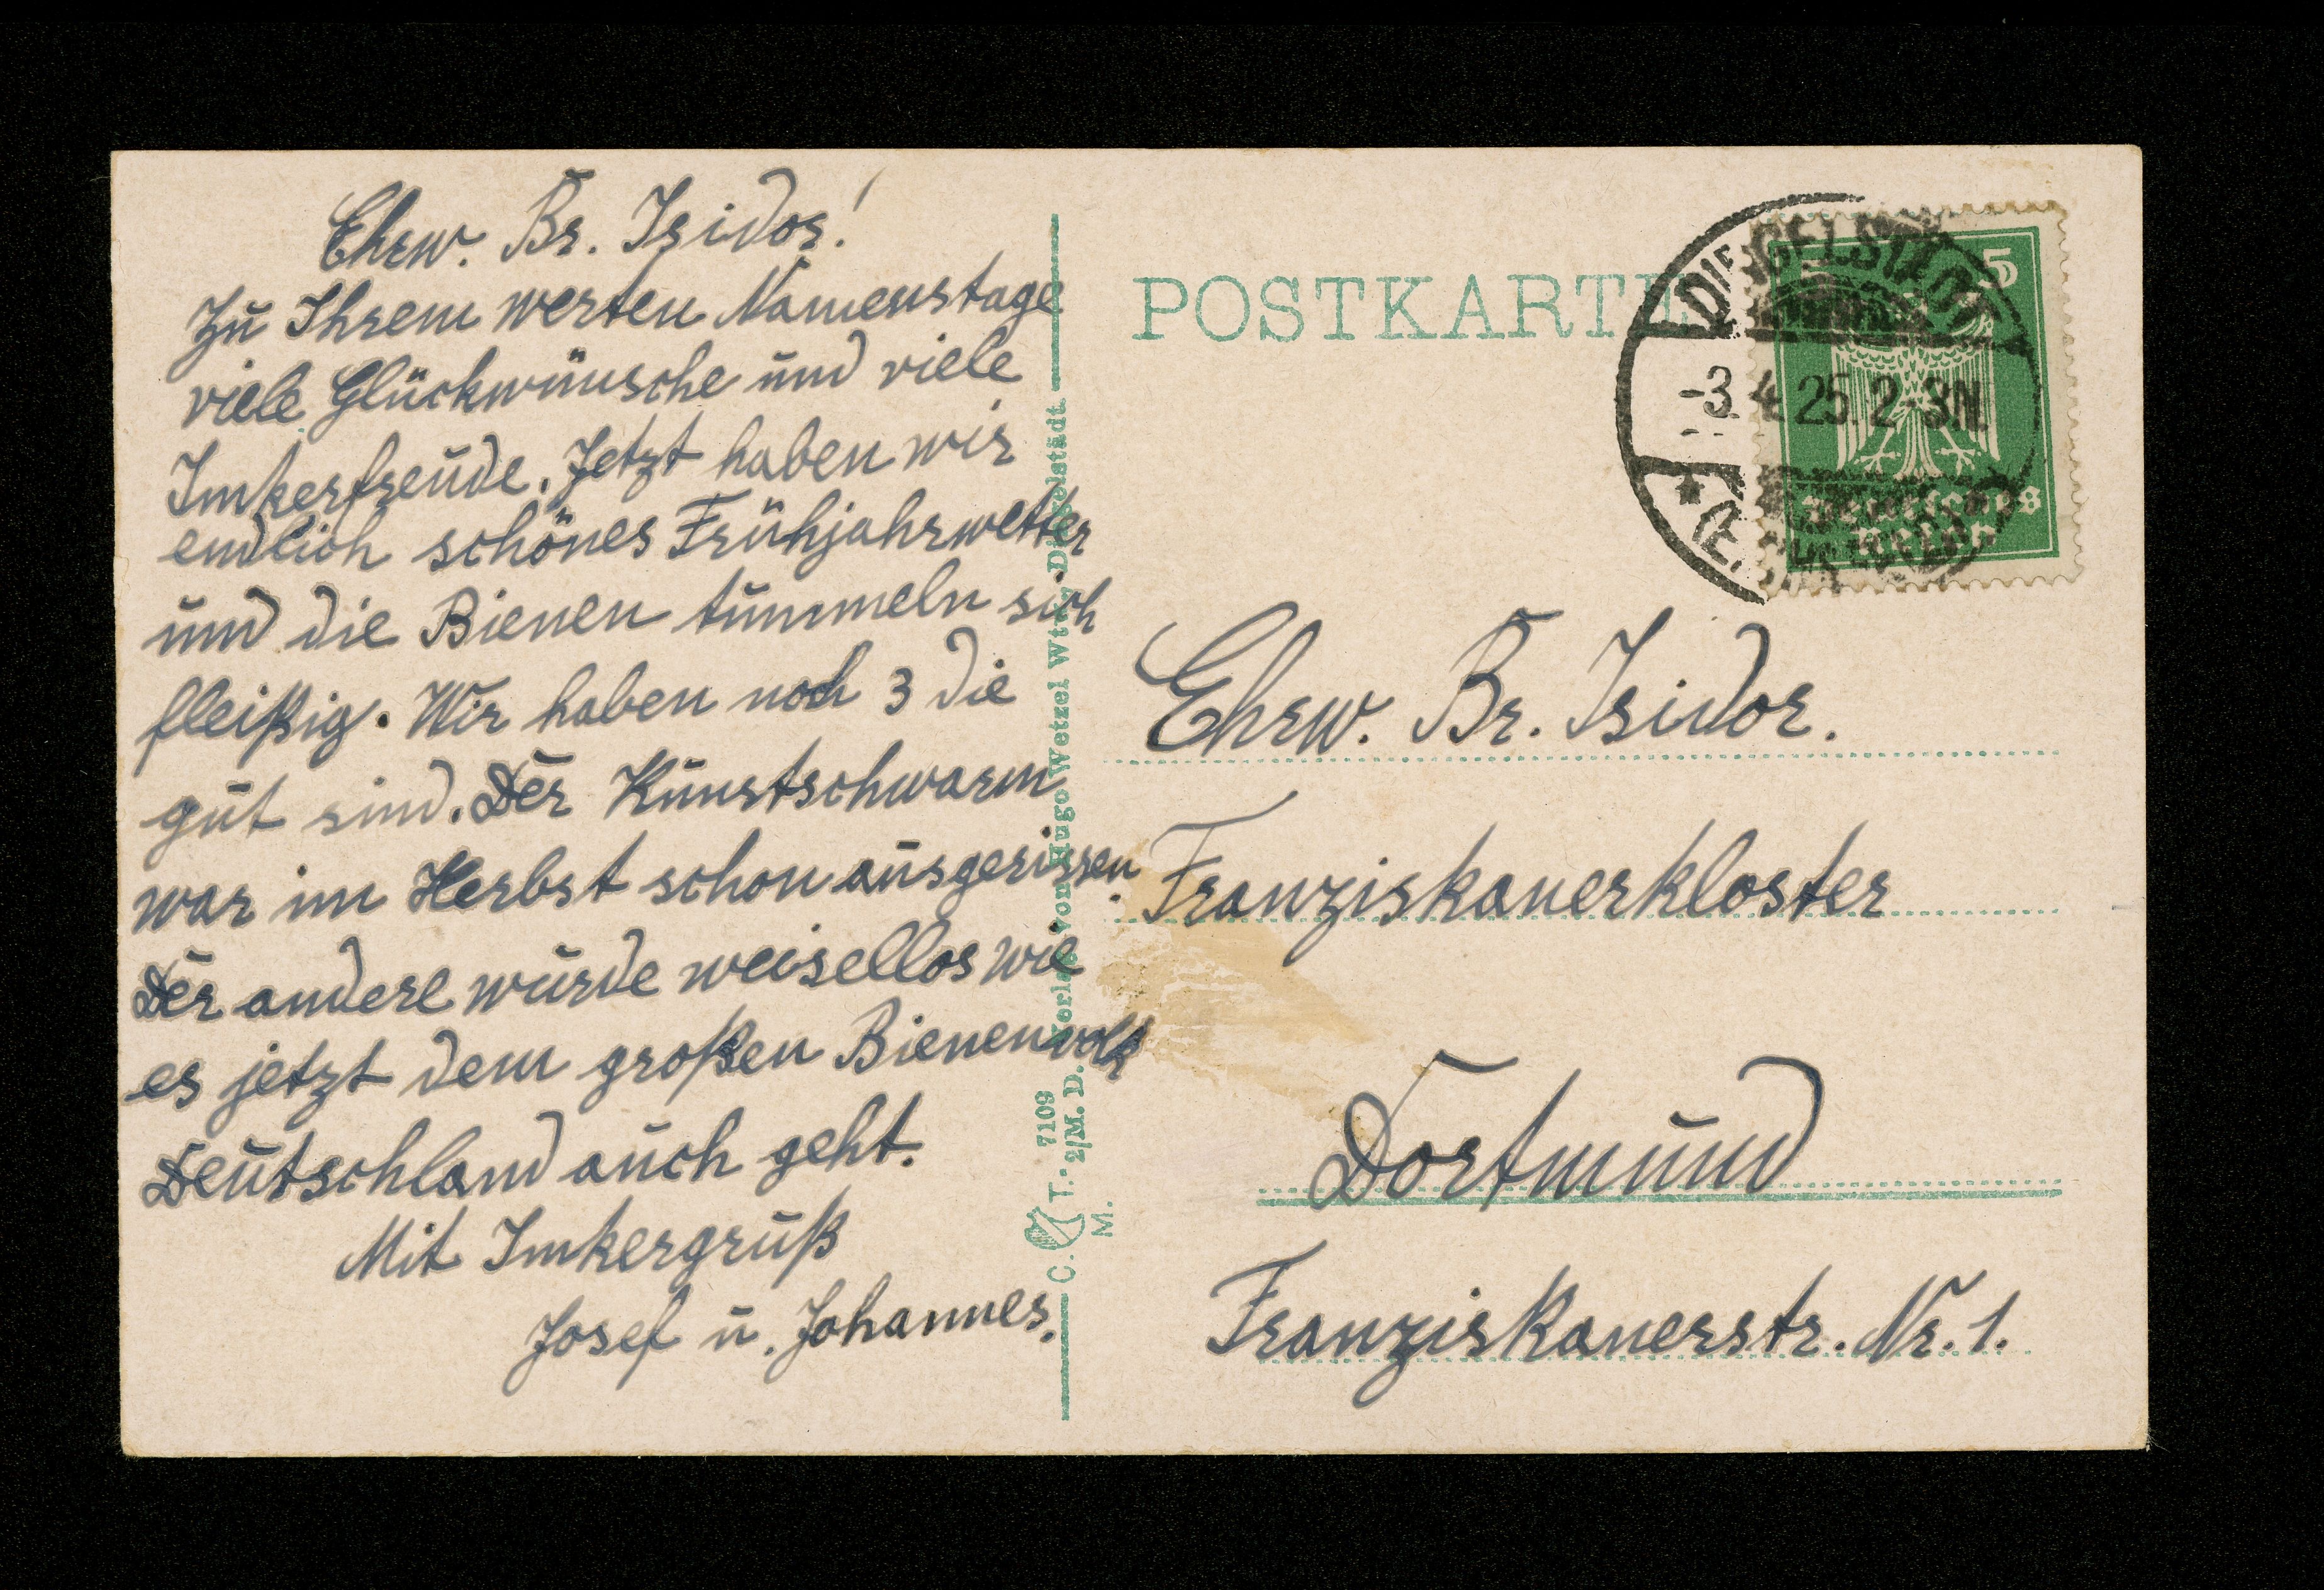 Ehrw. Br. Isidor!
Zu Ihrem werten Namenstage
viele Glückwünsche und viele
Imkerfreude. Jetzt haben wir
endlich schönes Frühjahrwetter
und die Bienen tummeln sich
fleißig. Wir haben noch 3 die
gut sind. Der Kunstschwarm
war im Herbst schon ausgerissen.
Der andere wurde weisellos wie
es jetzt dem großen Bienenvolk
Deutschland auch geht.
Mit Imkergruß
Josef u. Johannes.
Verlag von Hugo Wetzel Wtw., Dingelstädt
C. T. 7109
M. 2/M. D.
POSTKARTE
DINGELSTÄDT
-3.4.25.2-3N.
5
Deutsches
Reich
Ehrw. Br. Isidor.
Franziskanerkloster
Dortmund
Franziskanerstr. Nr. 1.